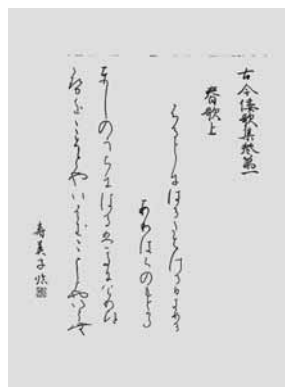 古今倭歌集巻第一
春歌上
ふるとしにはるたちける日よめる
ありはらのもとかた
としのうちにはるはきにけりひとゝ
せをこそとやいはむことしとやいはむ
寿美子臨